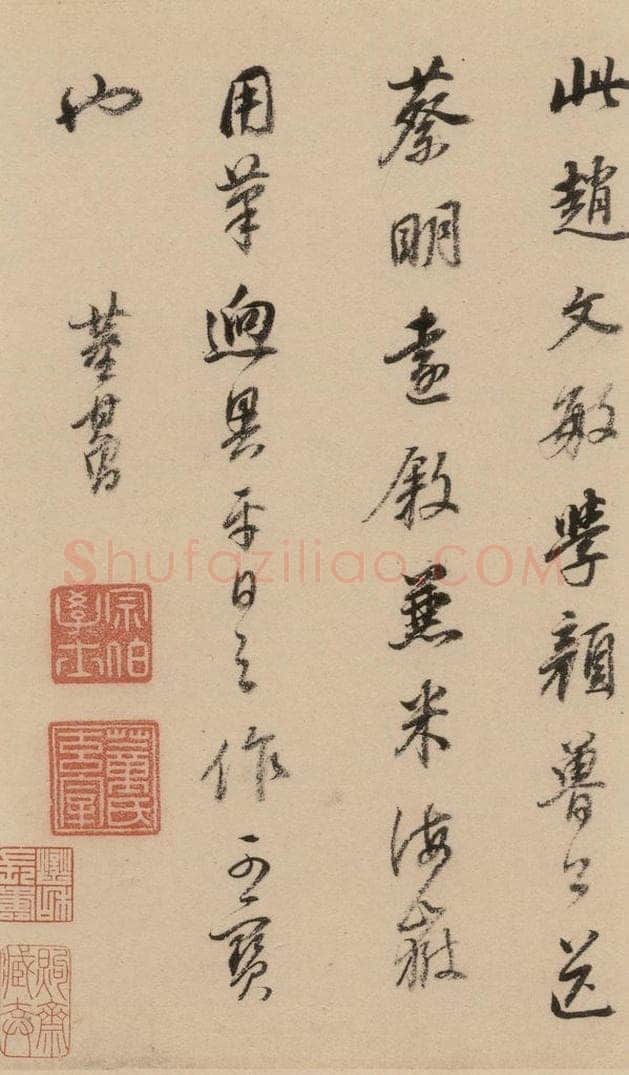 此趙文敏學顏魯公送
蔡明遠敘兼米海嶽
用筆迥異平日之作可寶
也 董其昌
宗伯學士
董氏玄宰
Shufaziliao.COM